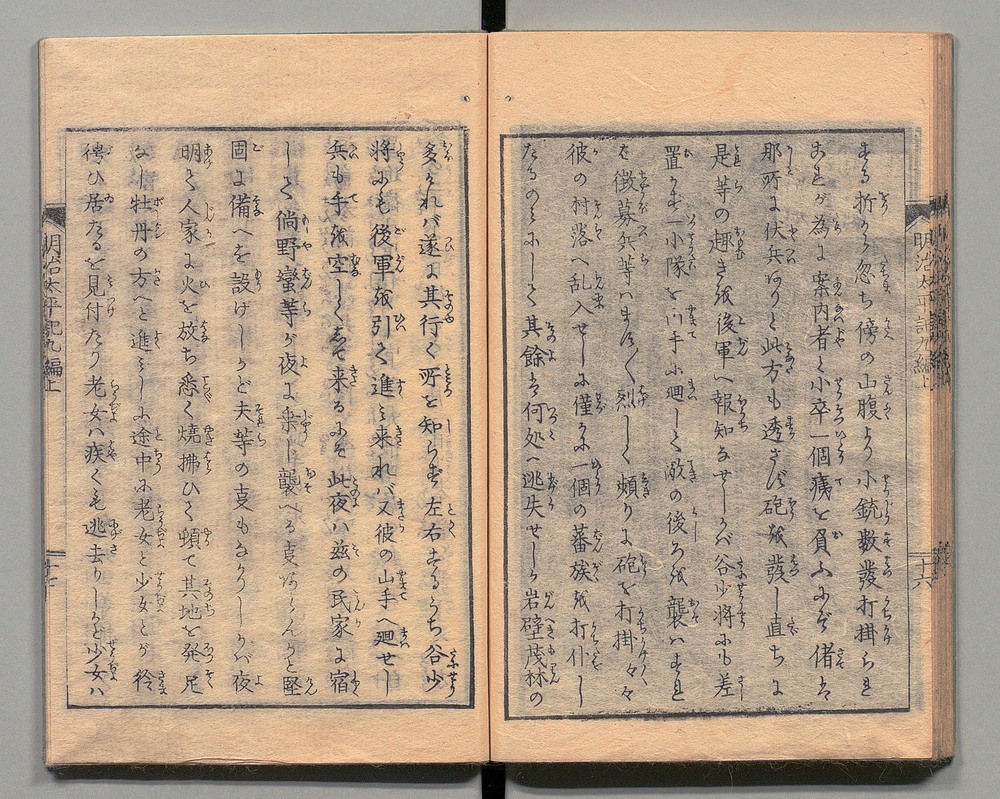 する折から忽ち傍の山腹より小銃数發打掛られ
これが為に案内者と小卒一個痍を負ふにぞ偖は
那所に伏兵ありと此方も透さず砲を發し直ちに
是等の趣きを後軍へ報知なせしかば谷少将にも差
置かれず一小隊を山手に廻して敵の後ろを襲はすれ
ば徴募兵等はます〱烈しく頻りに砲を打掛々々
彼の村落へ乱入せしに僅に一個の蕃族を打什し
たるのみにして其餘は何処へ逃失せしか岩壁茂林の
多ければ遂に其行く所を知らず左右するうち谷少
将にも後軍を引て進み来れバ又彼の山手へ廻せし
兵も手を空しくして来るにぞ此夜ハ茲の民家に宿
して倘野蛮等が夜に乗し襲へる支あらんかと堅
固に備へを設けしかど夫等の支もなかりしかば夜
明て人家に火を放ち悉く焼拂ひて頓て其地を発足
なし牡丹の方へと進みしに途中に老女と少女とが彳
徨ひ居たるを見付たり老女ハ疾くも逃去りしかど少女ハ
明治太平記九編上
十六
明治太平記九編上